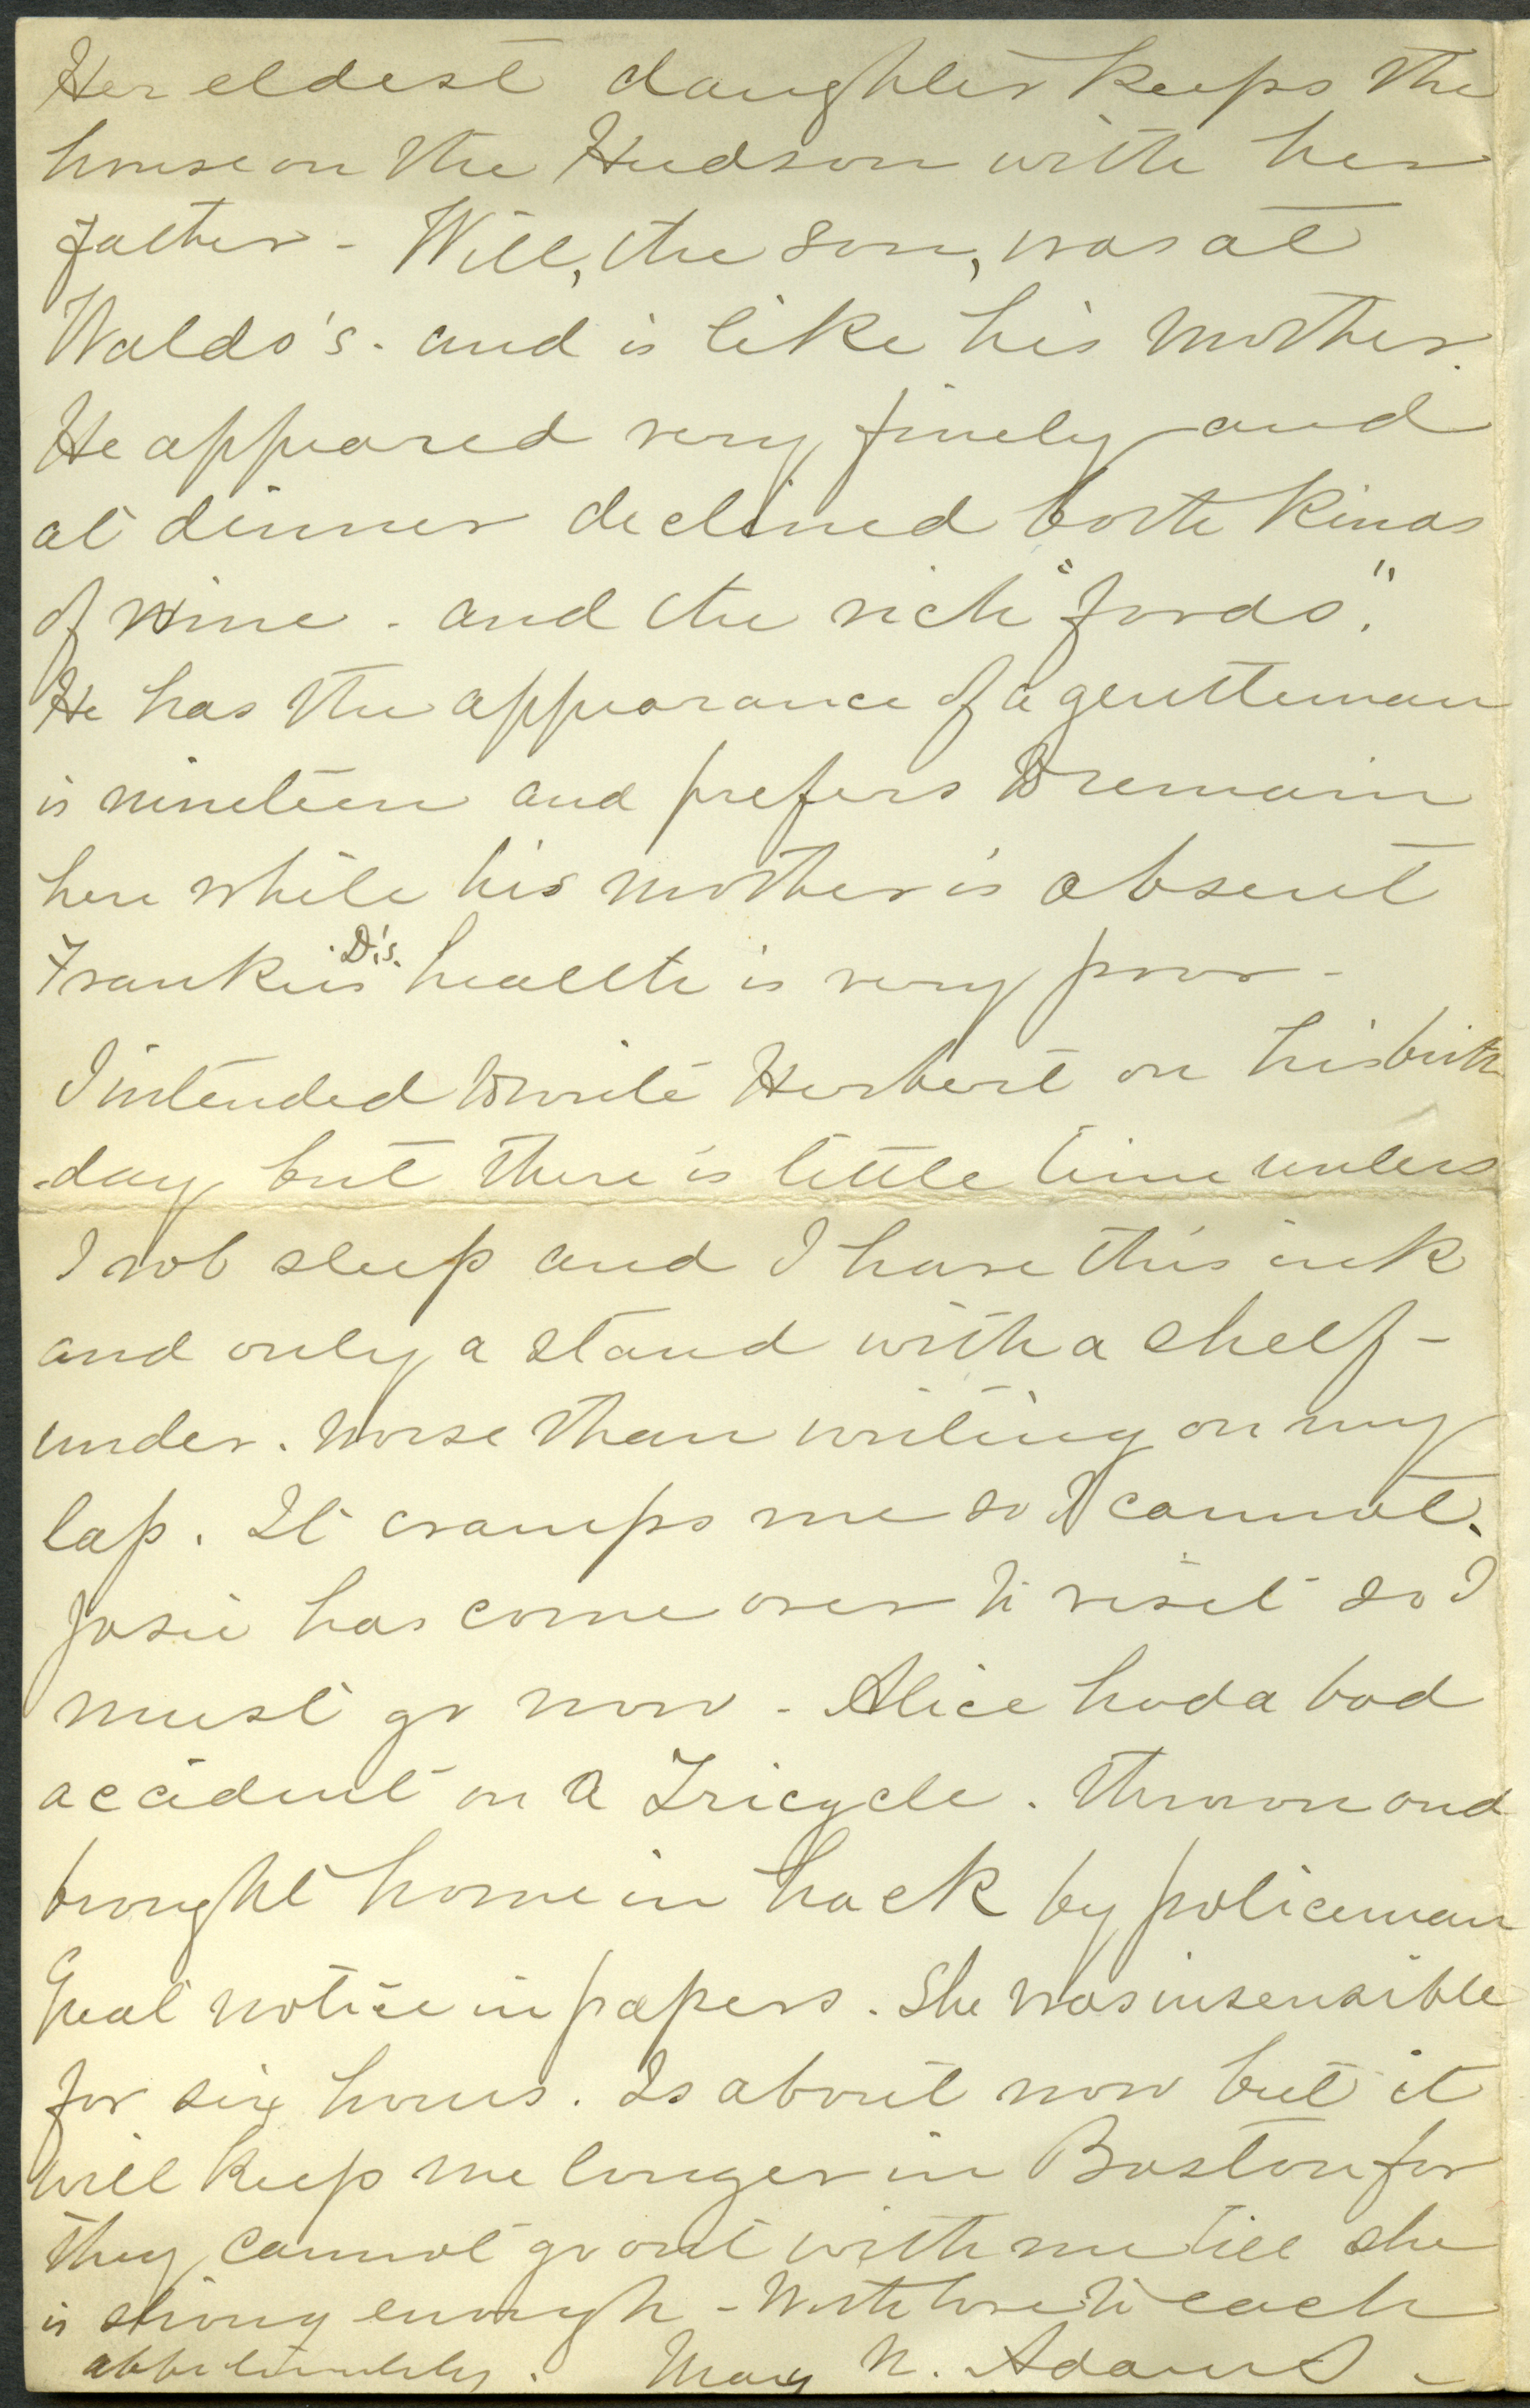 Her eldest daughter keeps the
house on the Hudson with her
father - Will, the son, was at
Waldo's. and is like his mother.
He appeared very finely and
at dinner declined both kinds
of wine. and the rich "foods".
He has the appearance of a gentleman
is nineteen and prefers to remain
here while his mother is absent
Frankie D's. health is very poor -
I intended to write Herbert on his birth
-day but there is little time unless
I rob sleep and I have this ink
and only a stand with a shelf -
under. worse than writing on my
lap. It cramps me so I cannot.
Josie has come over to visit so I
must go now - Alice had a bad
accident on a Tricycle. Thrown and
brought home in hack by policeman
Great notice in papers. She was insensible
for six hours. Is about now but it
will keep me longer in Boston for
they cannot go out with me till she
is strong enough - With love to each
affectionately. Mary N. Adams -